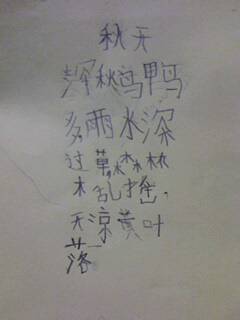 秋天
深秋鸟鸭
多雨水深
过草木森林
木乱摇，
天涼黄叶
落